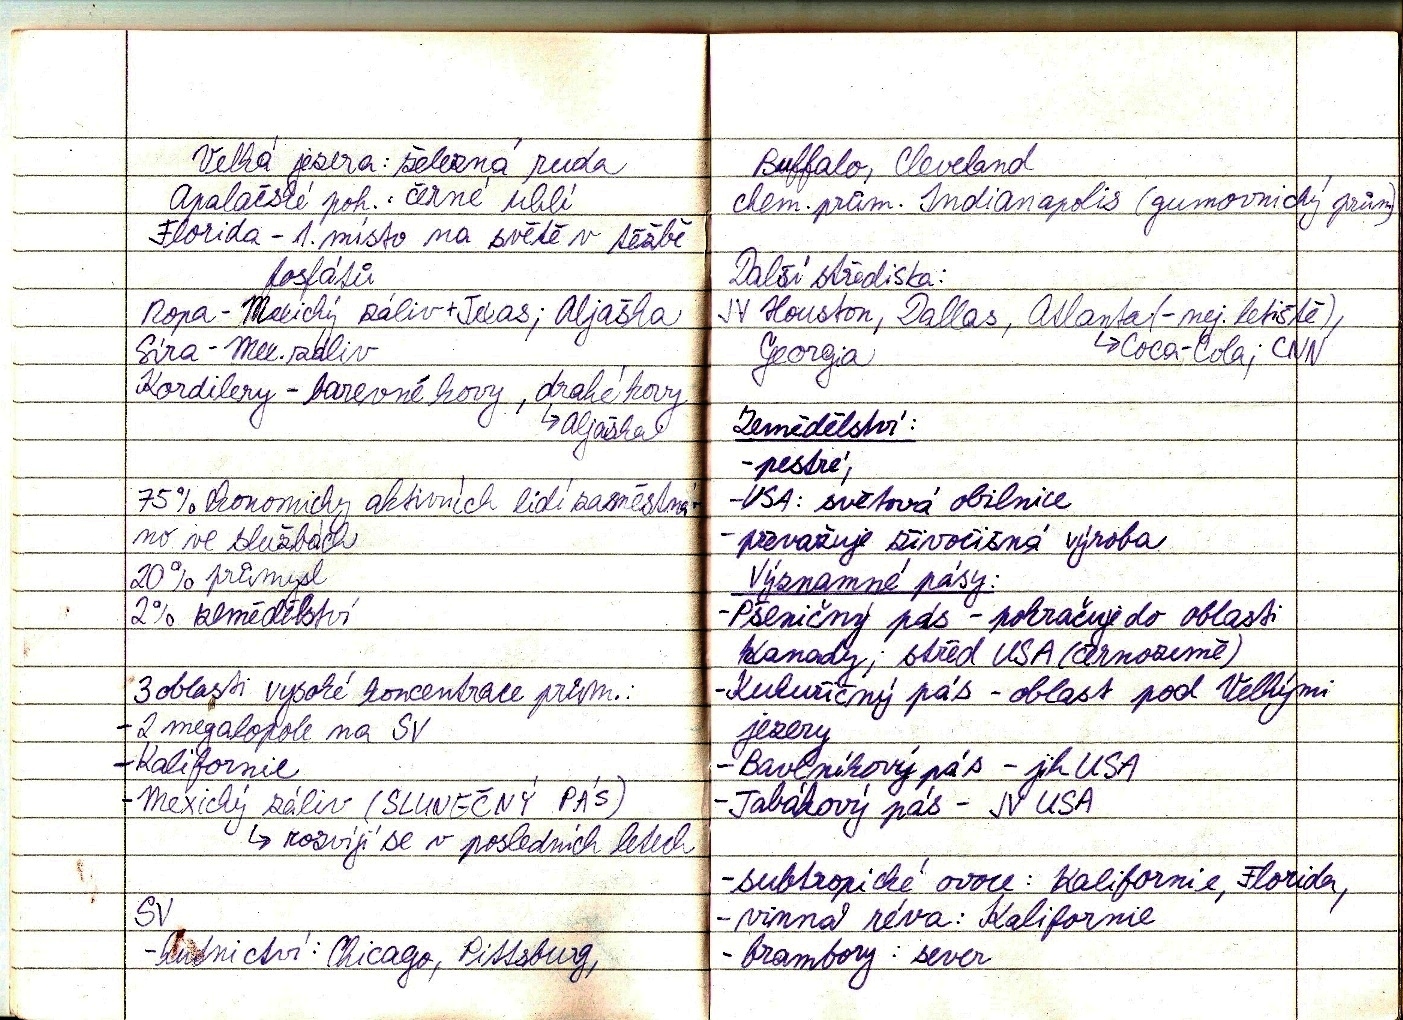 Velká jezera: železná ruda
Apalačské poh.: černé uhlí
Florida - 1. místo na světě v těžbě
fosfátů
Ropa - Mexický záliv + Texas; Aljaška
Síra - Mex. záliv
Kordilery - barevné kovy, drahé kovy
↳ Aljaška
75% ekonomicky aktivních lidí zaměstná-
no ve službách
20% průmysl
2% zemědělství
3 oblasti vysoké koncentrace prům.:
- 2 megalopole na SV
- Kalifornie
- Mexický záliv (SLUNEČNÝ PÁS)
↳ rozvíjí se v posledních letech
SV
- hutnictví: Chicago, Pittsburg,
Buffalo, Cleveland
chem. prům. Indianapolis (gumovnický prům)
Další střediska:
JV Houston, Dallas, Atlanta (- nej. letiště),
Georgia ↳ Coca-Cola; CNN
Zemědělství:
- pestré,
- USA: světová obilnice
- převažuje živočišná výroba
Významné pásy:
- Pšeničný pás - pokračuje do oblasti
Kanady; střed USA (černozemě)
- Kukuřičný pás - oblast pod Velkými
jezery
- Bavlníkový pás - jih USA
- Tabákový pás - JV USA
- subtropické ovoce: Kalifornie, Florida,
- vinná réva: Kalifornie
- brambory: sever